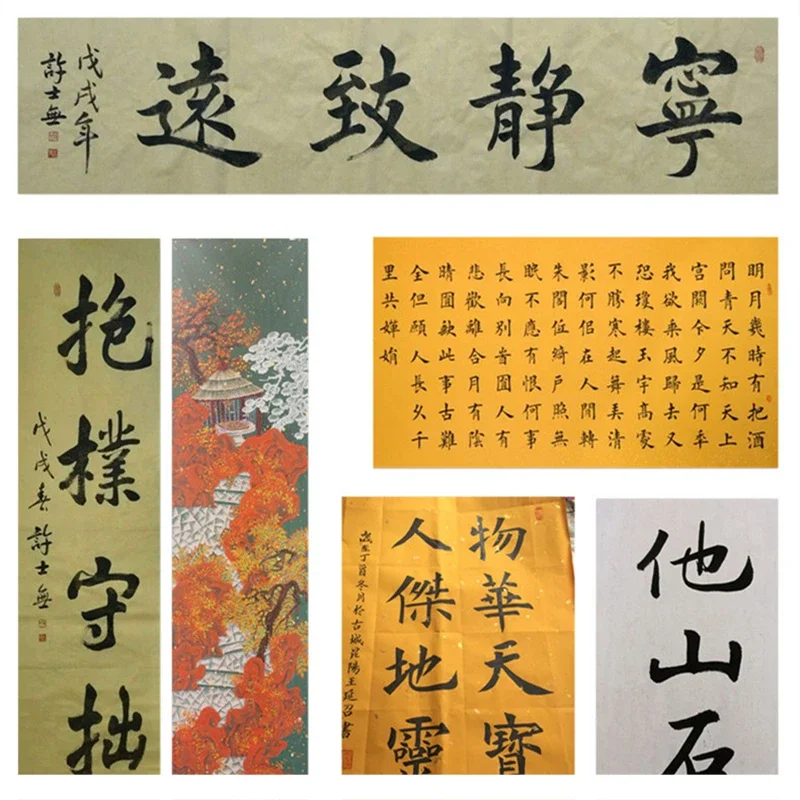 寧静致遠
戊戌年
許士無
抱樸守拙
戊戌春許士無
明月幾時有把酒
問青天不知天上
宮闕今夕是何年
我欲乘風歸去又
恐瓊樓玉宇高處
不勝寒起舞弄清
影何佀在人間轉
朱閣低綺戶照無
眠不應有恨何事
長向別旹圓人有
悲歡離合月有陰
晴圓缺此事古難
全但願人長久千
里共嬋娟
物華天寶
人傑地靈
歲在丁酉冬月於古城范陽王延召書
他山石